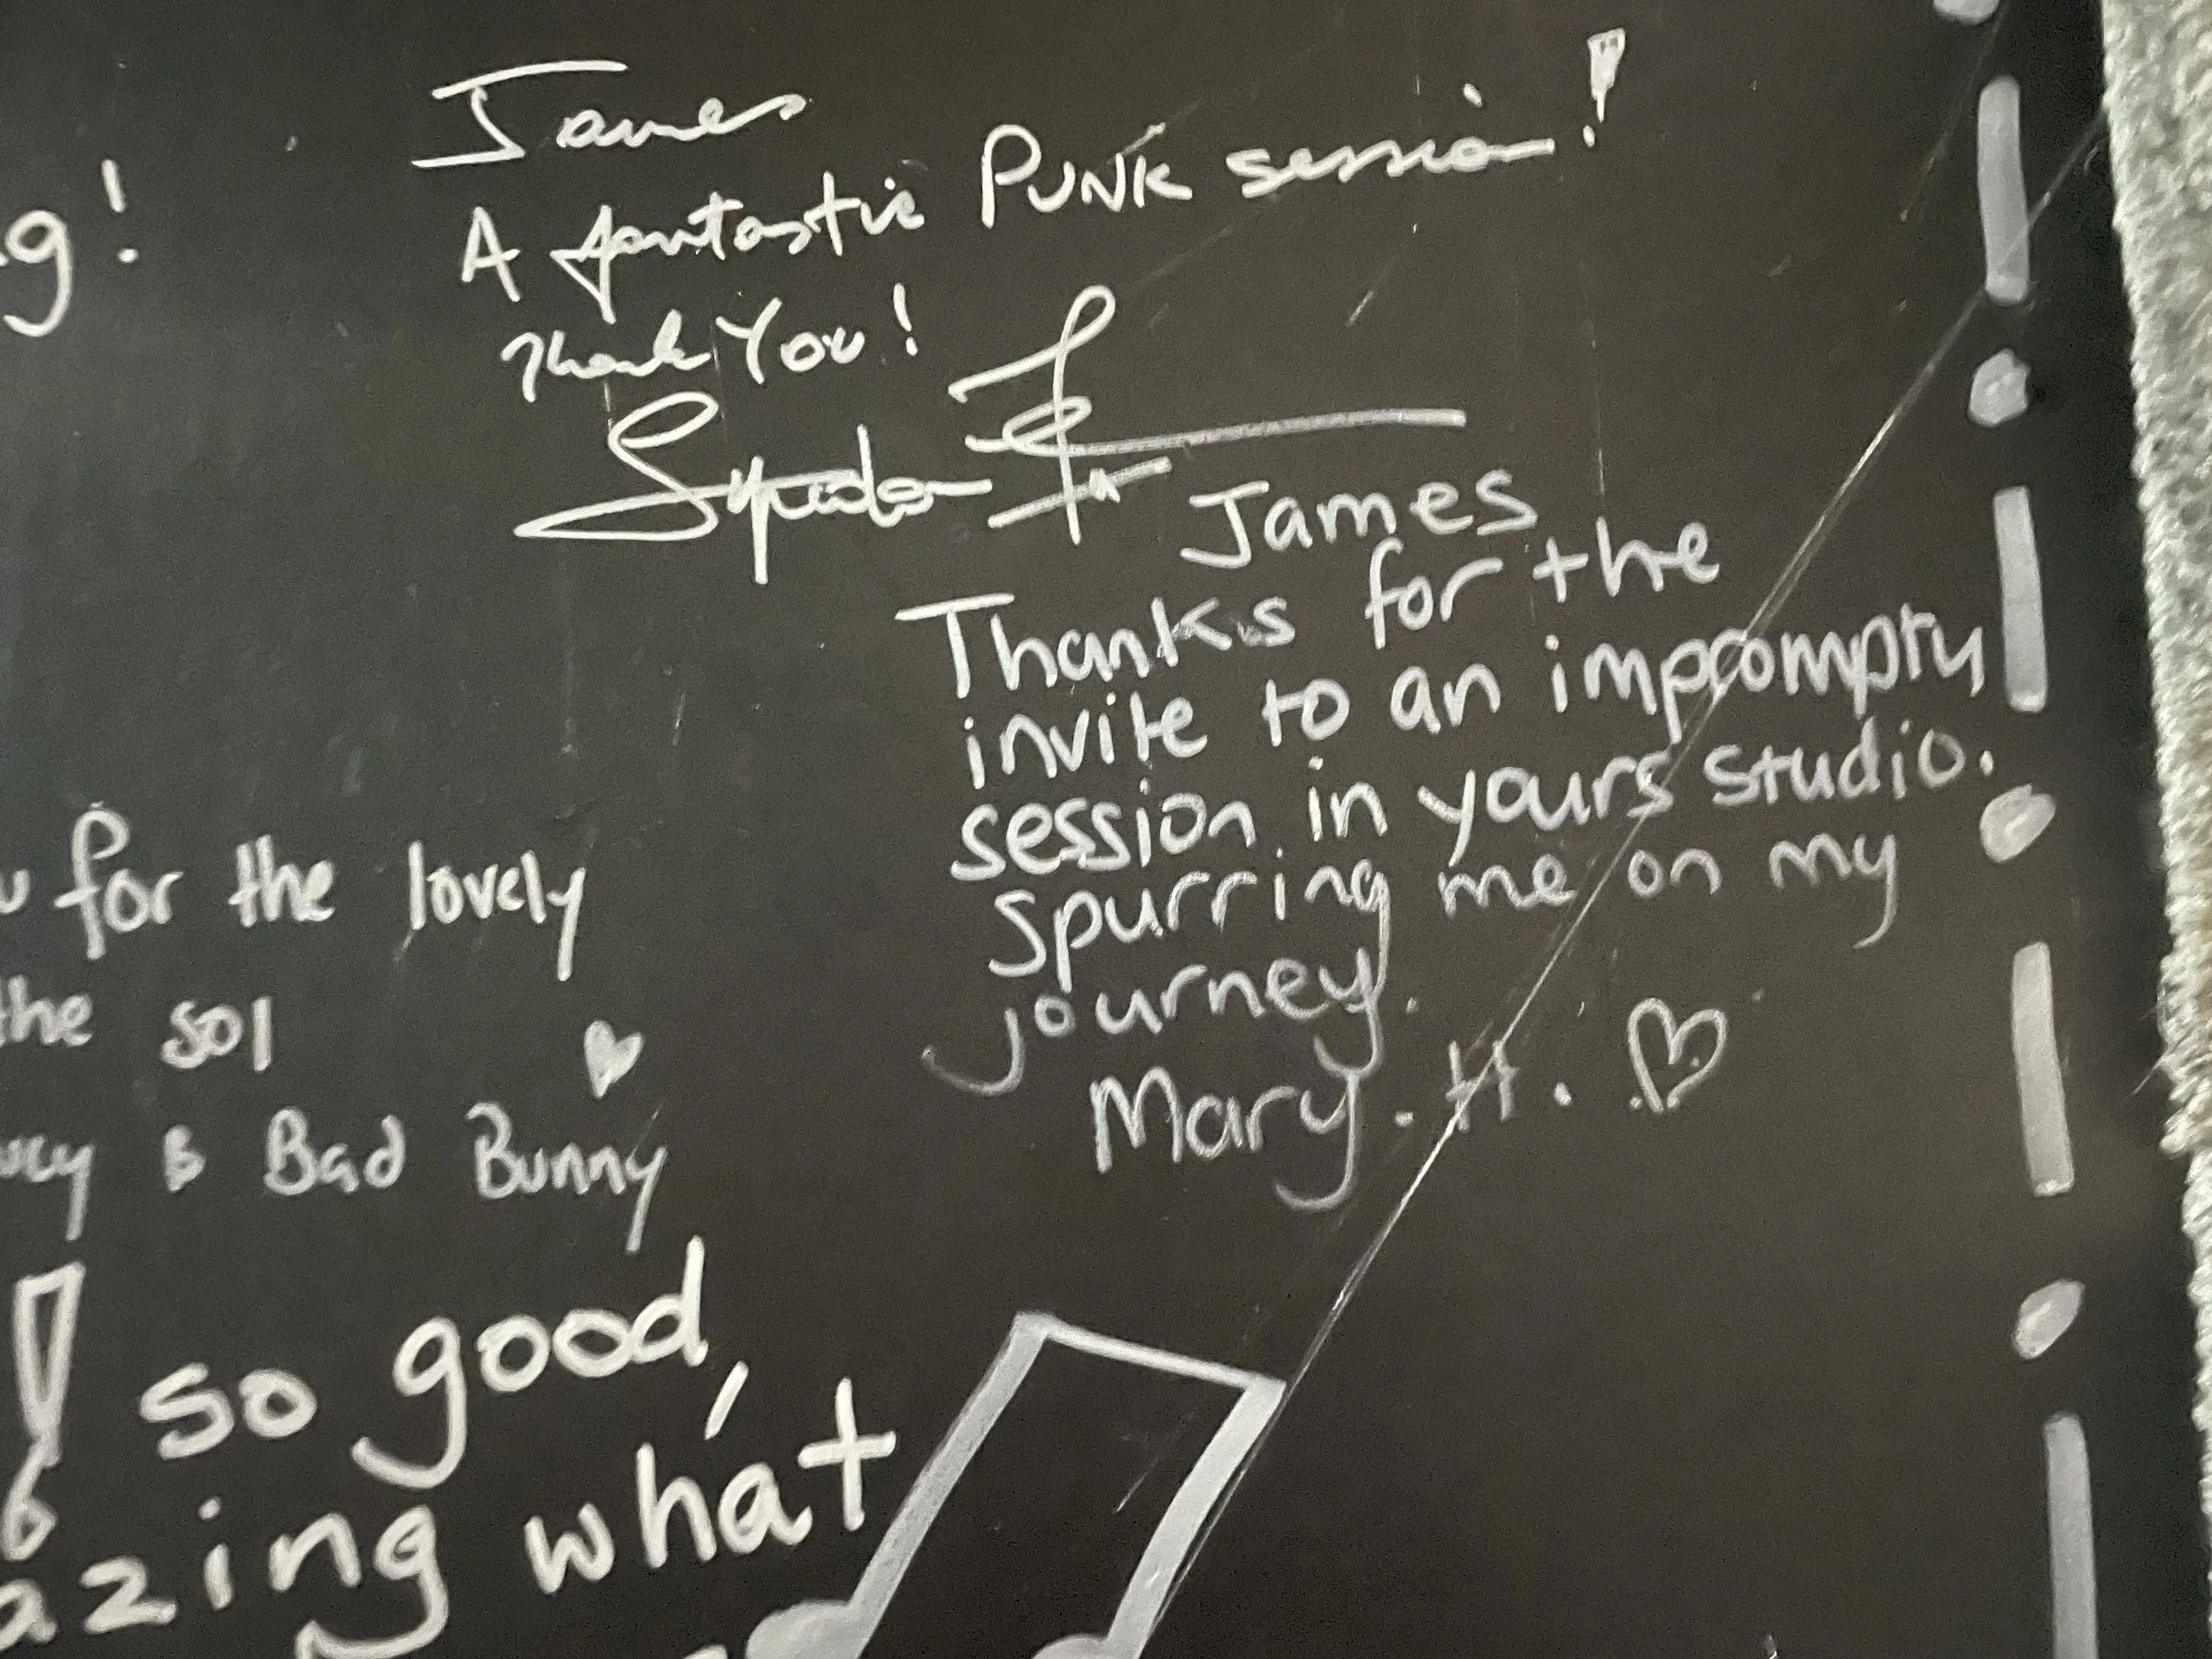 g!
James
A fantastic PUNK session!
Thank You!
James
Thanks for the
invite to an impromptu
session in yours studio.
spurring me on my
journey.
Mary. H.
for the lovely
the sol
& Bad Bunny
so good,
azing what